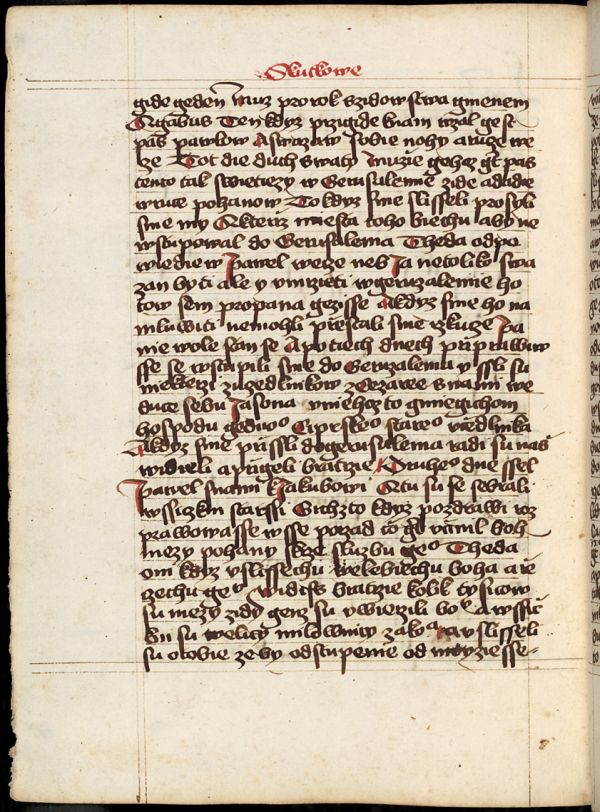 Skutkowe
gide geden muz prorok z zidowstwa gmenem
Agabus Ten kdyz przigide k nam wzal gest
pas pawlow A swazaw sobie nohy a ruze we
ze Tot die duch swaty Muzie gehoz gt pas
tento tak swieziezy w Gerusalemie zide a dadie
w ruce pohanow To kdyz sme slisseli prosyli
sme my A kterziz z miesta toho biechu aby ne
wstupowal do Gerusalema Theda odpo
wiediew Pawel wecze neb Ja netoliko swa
zan byti ale y vmrzieti w geruzalemie ho
tow sem pro pana gezisse A kdyz sme ho na
mluwiti nemohli przestali sme rzkuze Pa
nie wole stan se A po tiech dnech prziprawiw
sse se wstupili sme do Geruzalema y ssli su
niekterzi z uczedlnikow z Cezaree s nami we
duce sebu Jasona v niehozto gmieguchom
hospodu gednoo Ciprskeo stareo vcedlnika
A kdyz sme prissli do gerusalema radi su nas
widieli a prigeli bratrzie Druheo dne ssel
Pawel s nami k Jakubowi A tu su se sebrali
wssiczkni starssi Gichzto kdyz pozdrawi roz
prawowasse wsse porzad to gt vcinil boh
mezy pohany skrze sluzbu geo Theda
oni kdyz vslissechu welebiechu boha a rze
zechu geo widiss bratrzie kolik tysicow
su mezy zidy genz su vwierzili boo A wssic
kni su welicy milownicy zakoa A vslisseli
su o tobie ze by odstupenie od moyziesse